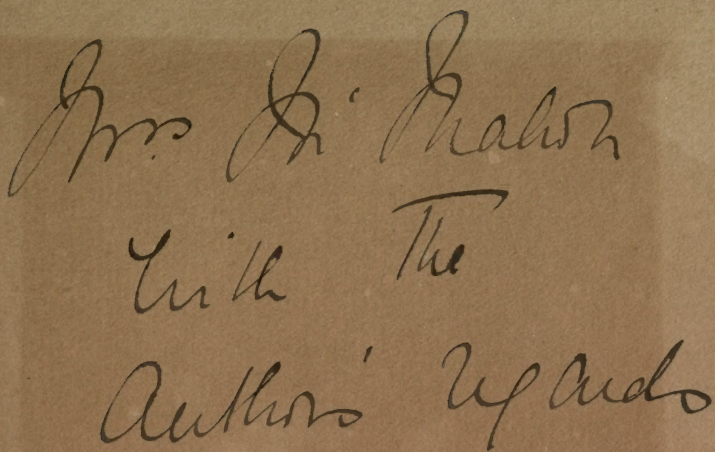 Mrs Mc Mahon
with The
Author's regards